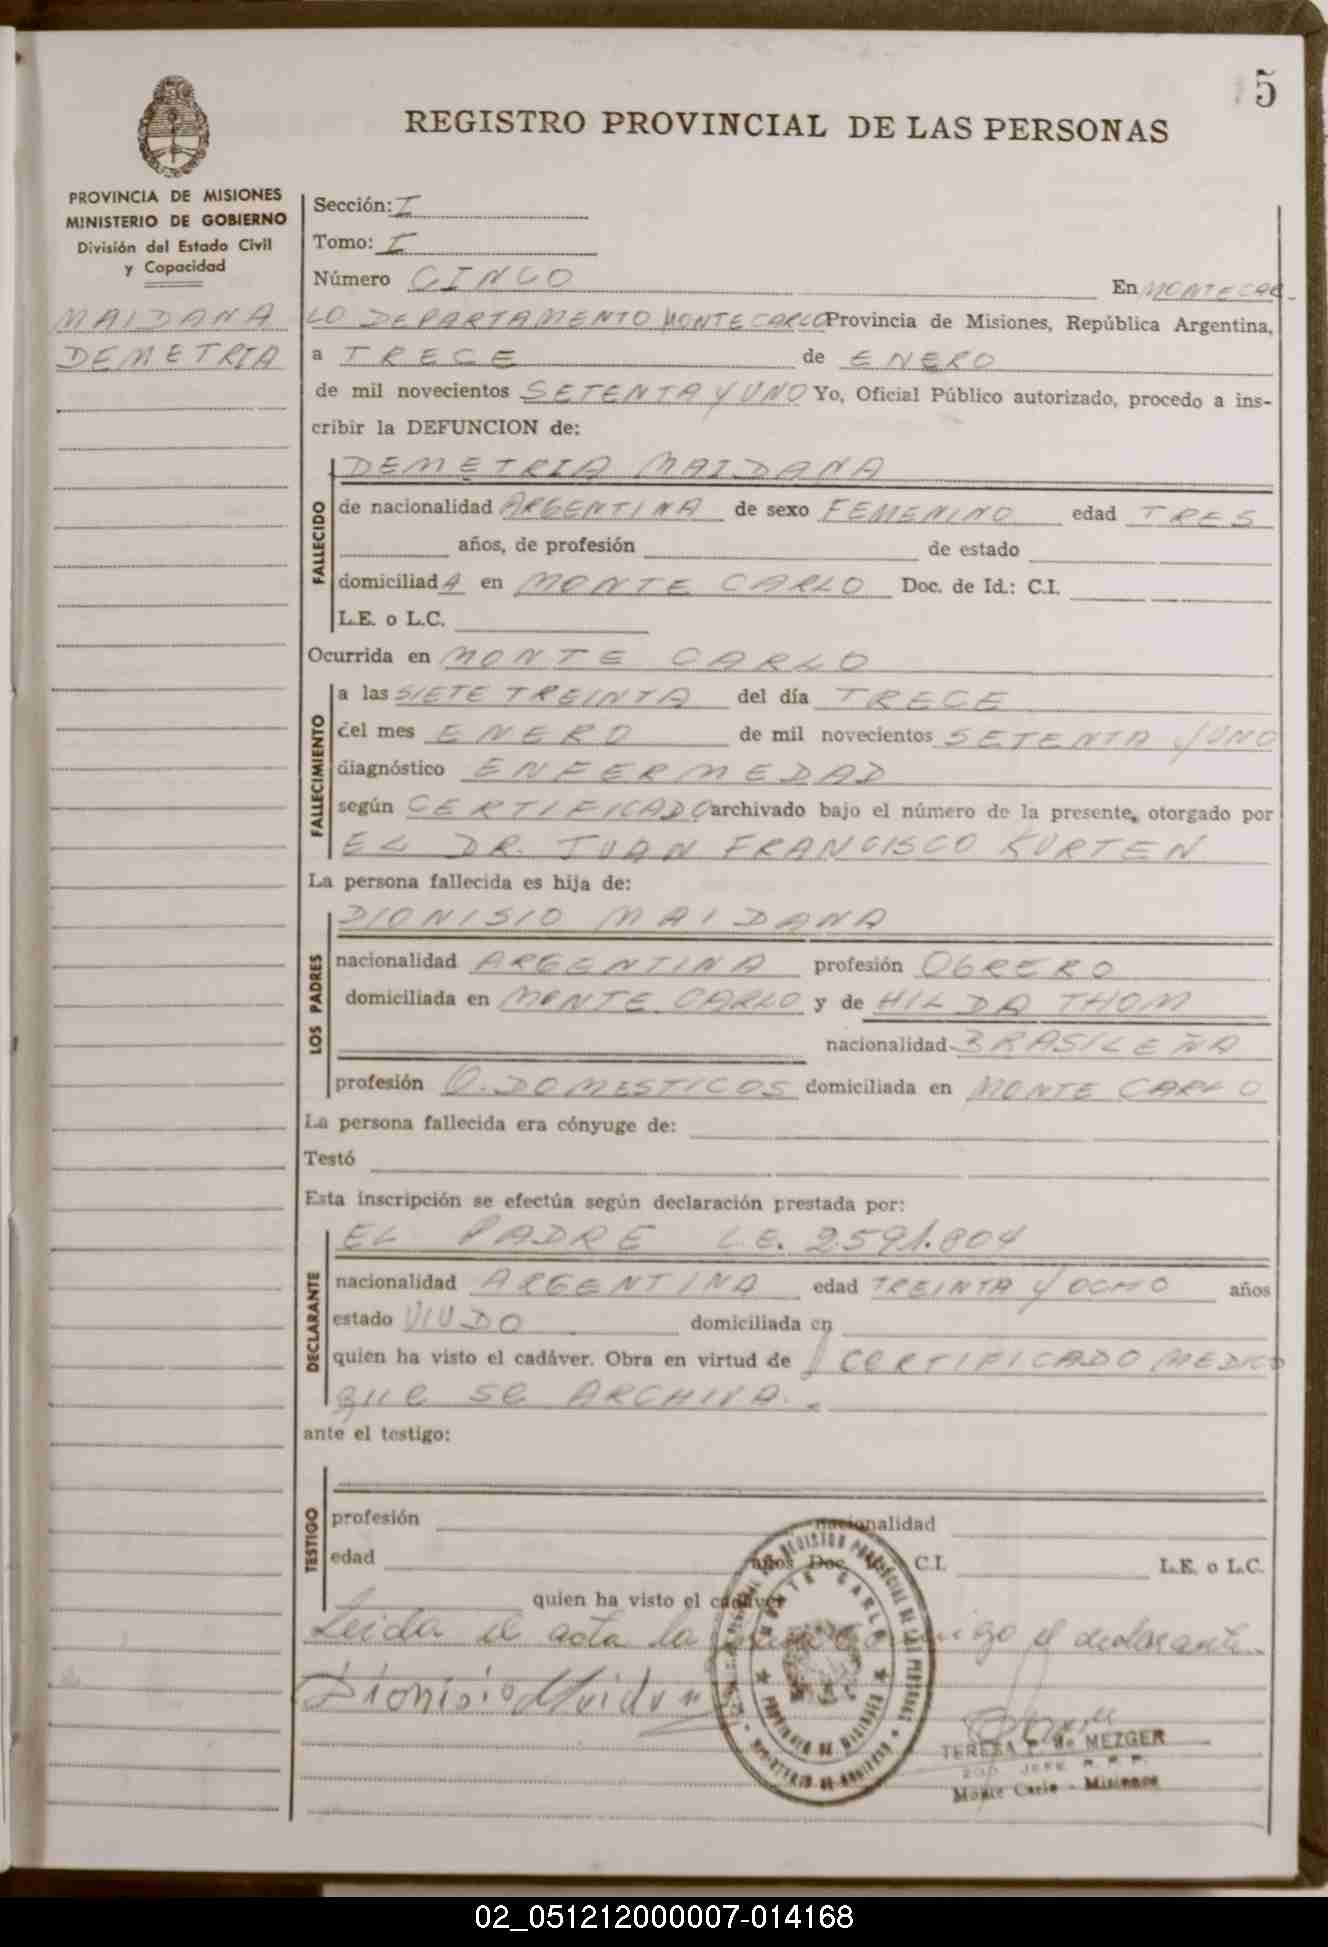 5
REGISTRO PROVINCIAL DE LAS PERSONAS
PROVINCIA DE MISIONES
MINISTERIO DE GOBIERNO
División del Estado Civil
y Capacidad
MAIDANA
DEMETRIA
Sección: I
Tomo: I
Número CINCO En MONTECAR-
LO DEPARTAMENTO MONTECARLO Provincia de Misiones, República Argentina,
a TRECE de ENERO
de mil novecientos SETENTA Y UNO Yo, Oficial Público autorizado, procedo a ins-
cribir la DEFUNCION de:
FALLECIDO
DEMETRIA MAIDANA
de nacionalidad ARGENTINA de sexo FEMENINO edad TRES
años, de profesión de estado
domiciliadA en MONTE CARLO Doc. de Id.: C.I.
L.E. o L.C.
Ocurrida en MONTE CARLO
FALLECIMIENTO
a las SIETE TREINTA del día TRECE
del mes ENERO de mil novecientos SETENTA Y UNO
diagnóstico ENFERMEDAD
según CERTIFICADO archivado bajo el número de la presente, otorgado por
EL DR. JUAN FRANCISCO KURTEN
La persona fallecida es hija de:
LOS PADRES
DIONISIO MAIDANA
nacionalidad ARGENTINA profesión OBRERO
domiciliada en MONTE CARLO y de HILDA THOM
nacionalidad BRASILEÑA
profesión Q. DOMESTICOS domiciliada en MONTE CARLO
La persona fallecida era cónyuge de:
Testó
Esta inscripción se efectúa según declaración prestada por:
DECLARANTE
EL PADRE L.E. 2591.804
nacionalidad ARGENTINA edad TREINTA Y OCHO años
estado VIUDO domiciliada en
quien ha visto el cadáver. Obra en virtud de CERTIFICADO MEDICO
que se ARCHIVA.
ante el testigo:
TESTIGO
profesión nacionalidad
edad años Doc. C.I. L.E. o L.C.
quien ha visto el cadáver
Leida el acta la conmigo el declarante
Dionisio Maidana
MONTE CARLO
PROVINCIA DE MISIONES
TERESA de MEZGER
JEFE R. P. P.
Monte Carlo - Misiones
02_051212000007-014168